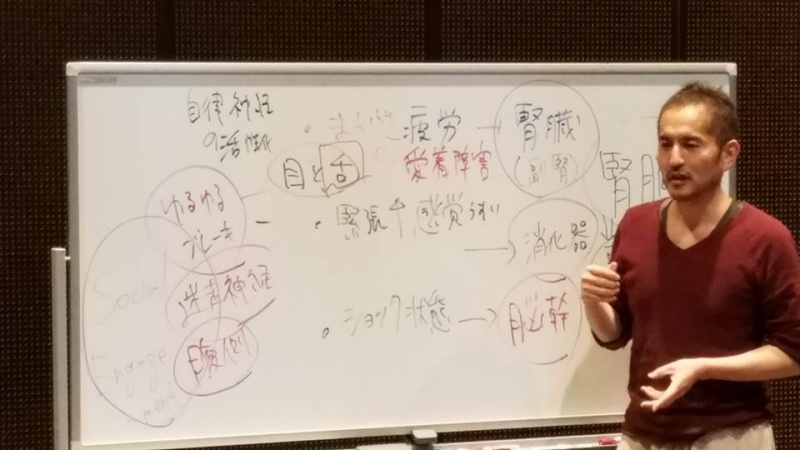 自律神経
の活性化
疲労 → 腎臓
愛着障害 (副腎)
活
ゆるゆる
ブレーキ
・緊張↑感覚うすい
→ 消化器
Social
Engage
ment
迷走神経
腹側
・ショック状態 → 脳幹
腎